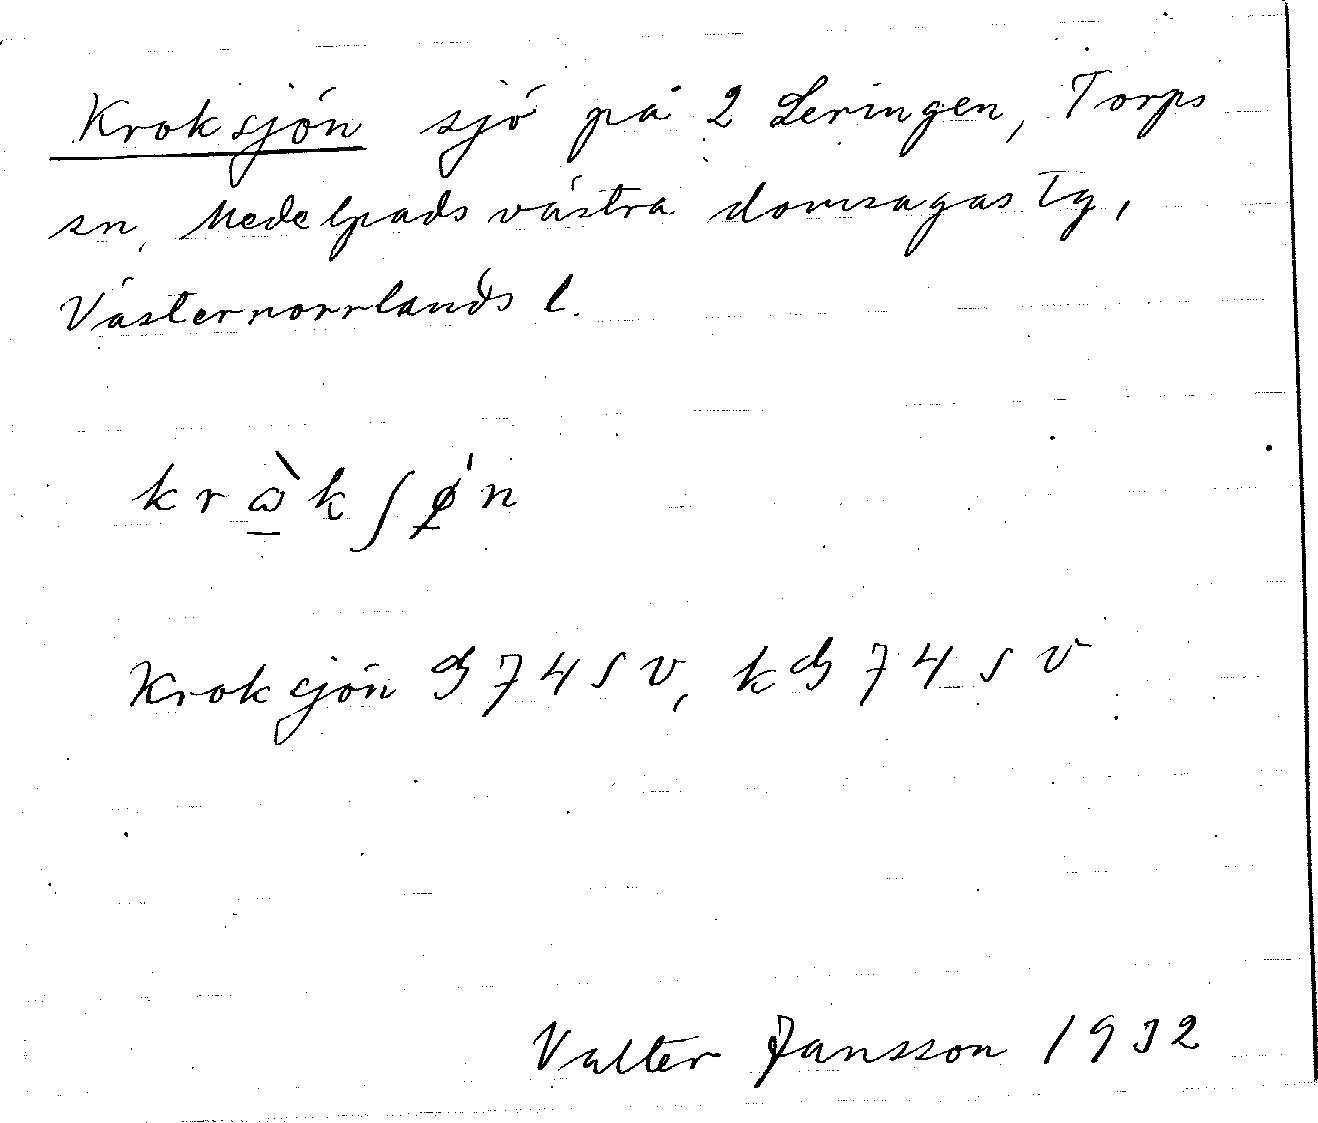 Kroksjön sjö på 2 Leringen, Torps
sn, Medelpads västra domsagas tg,
Västernorrlands l.
krὼ̱kʃǿ̨n
Kroksjön GJ 74 S V, kGJ 74 S V
Valter Jansson 1932